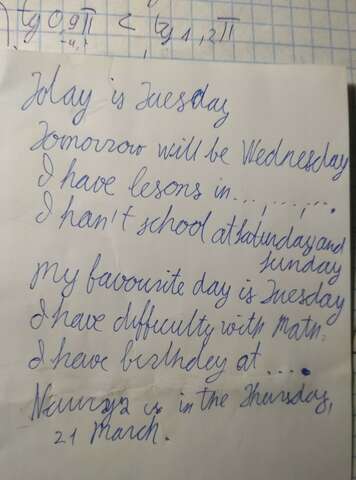 tg 0,9π < tg 1,2π
Today is Tuesday
Tomorrow will be Wednesday
I have lesons in ..., ..., ... .
I han't school at saturday and
sunday
My favourite day is Tuesday
I have difficulty with Math.
I have birthdey at ....
is in the Thursday,
21 March.